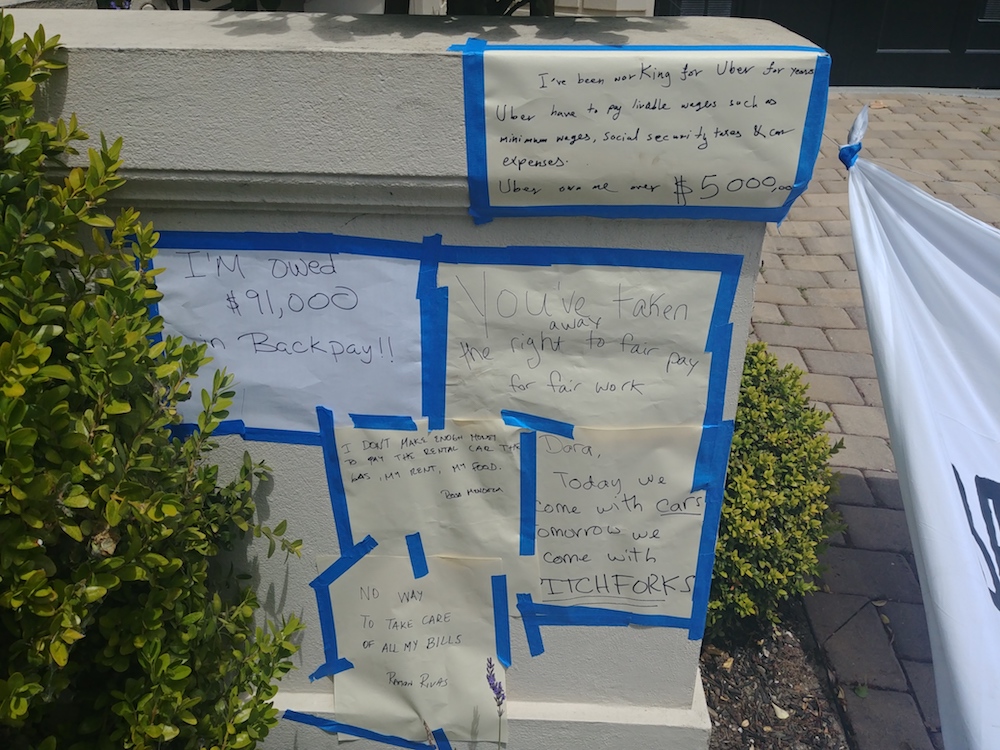 I've been worKing for Uber for years
Uber have to pay livable wages such as
minimum wages, social security taxes & car
expenses.
Uber owe me over $5000,00
I'M owed
$91,000
in Backpay!!
You've taken
away
the right to fair pay
for fair work
I DON'T MAKE ENOUGH MONEY
TO PAY THE RENTAL CAR, THE
GAS, MY RENT, MY FOOD.
Dara,
Today we
come with cars
omorrow we
come with
ITCHFORKS
NO WAY
TO TAKE CARE
OF ALL MY BILLS
RAMON RIVAS